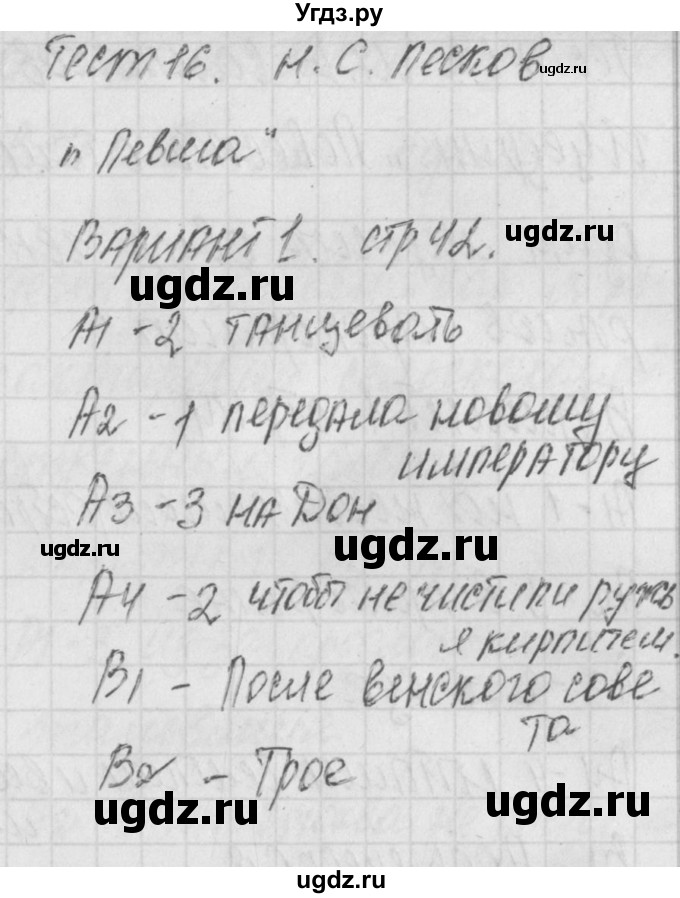 Угдз.ру
Тест 16. Н. С. Лесков
ugdz.ru
„Левша“
Вариант 1. стр 42.
ugdz.ru
ugdz.ru
А1 - 2 танцеволь
А2 - 1 передала новому
императору
А3 - 3 на Дон
ugdz.ru
ugdz.ru
А4 - 2 чтобы не чистили ружь
я кирпичем.
В1 - После венского сове
та
В2 - Трое
ugdz.ru
ugdz.ru
ugdz.ru